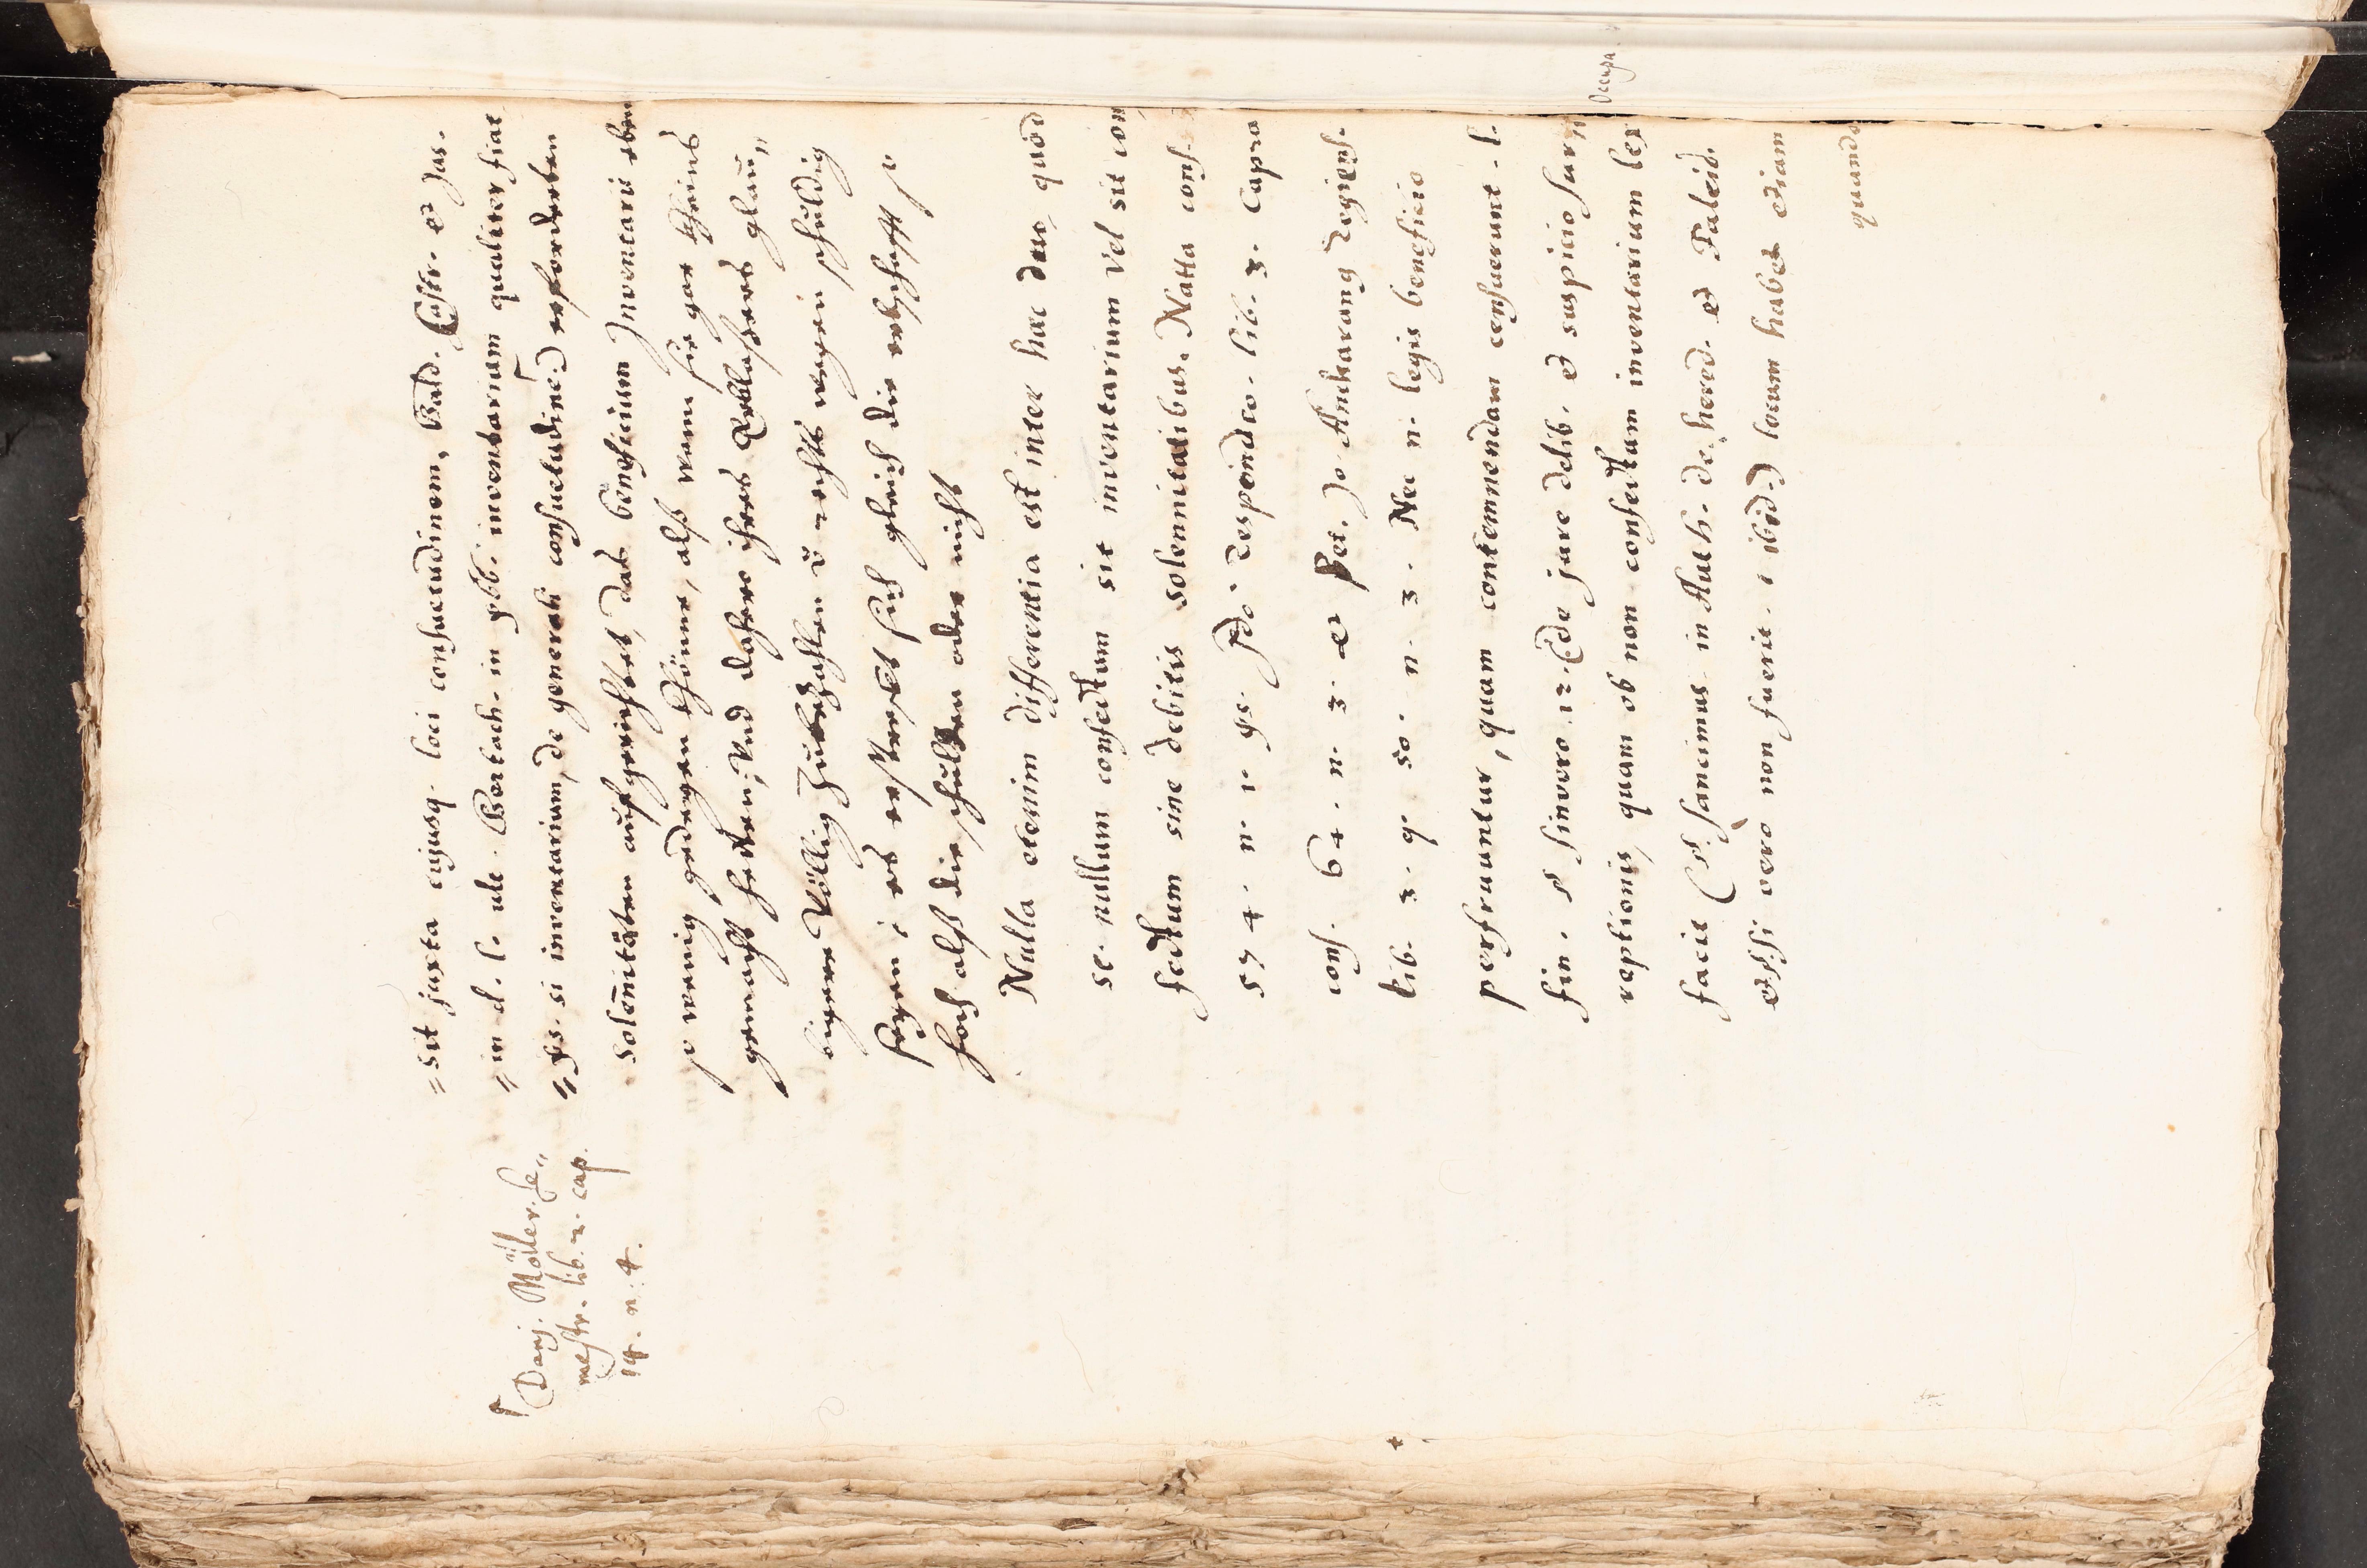 sit juxta cujusq. loci consuetudinem, Bald. Castr. et Jas.
in d. l. ult. Bertach. in gbb. inventarium qualiter fiat
gs. si inventarium, de generali consuetudine) erfordertten
Solenitäten aufgerichtet, das beneficium Inventarii eben
so wenig gedeyen können, alß wann sie gar keins
gemacht hetten, Vnd dahero ihres Erblaßers glau„
bigere Völlig Zubezahlen v rechts wegen schuldig
seyen, es erstrecket sich gleich die erbschafft so
hoch alß die schulden oder nicht
Nulla etenim differentia est inter hæc duo, quòd
se. nullum confectum sit inventarium vel sit con
fectum sine debitis solennitatibus. Natta cons.
574. n. 1. gs. respondeo. lib. 3. Capra
cons. 64. n. 3. et Pet. Jo. Ancharang regiens.
lib. 3. q. 50. n. 3. Nec n. legis beneficio
perfruuntur, quam contemnendam censuerunt. l.
fin. § sinvero. 12. C de jure delib. et suspicio sur„
reptionis, quam ob non confectum inventarium lex
facit (§. Sancimus. in Auth. de hered. et Falcid.
et §. si vero non fuerit. 1 ibid.) locum habet etiam
quando
Danj. Möller. Se„
mestr. lib. 2. cap.
19. n. 4.
Occupa